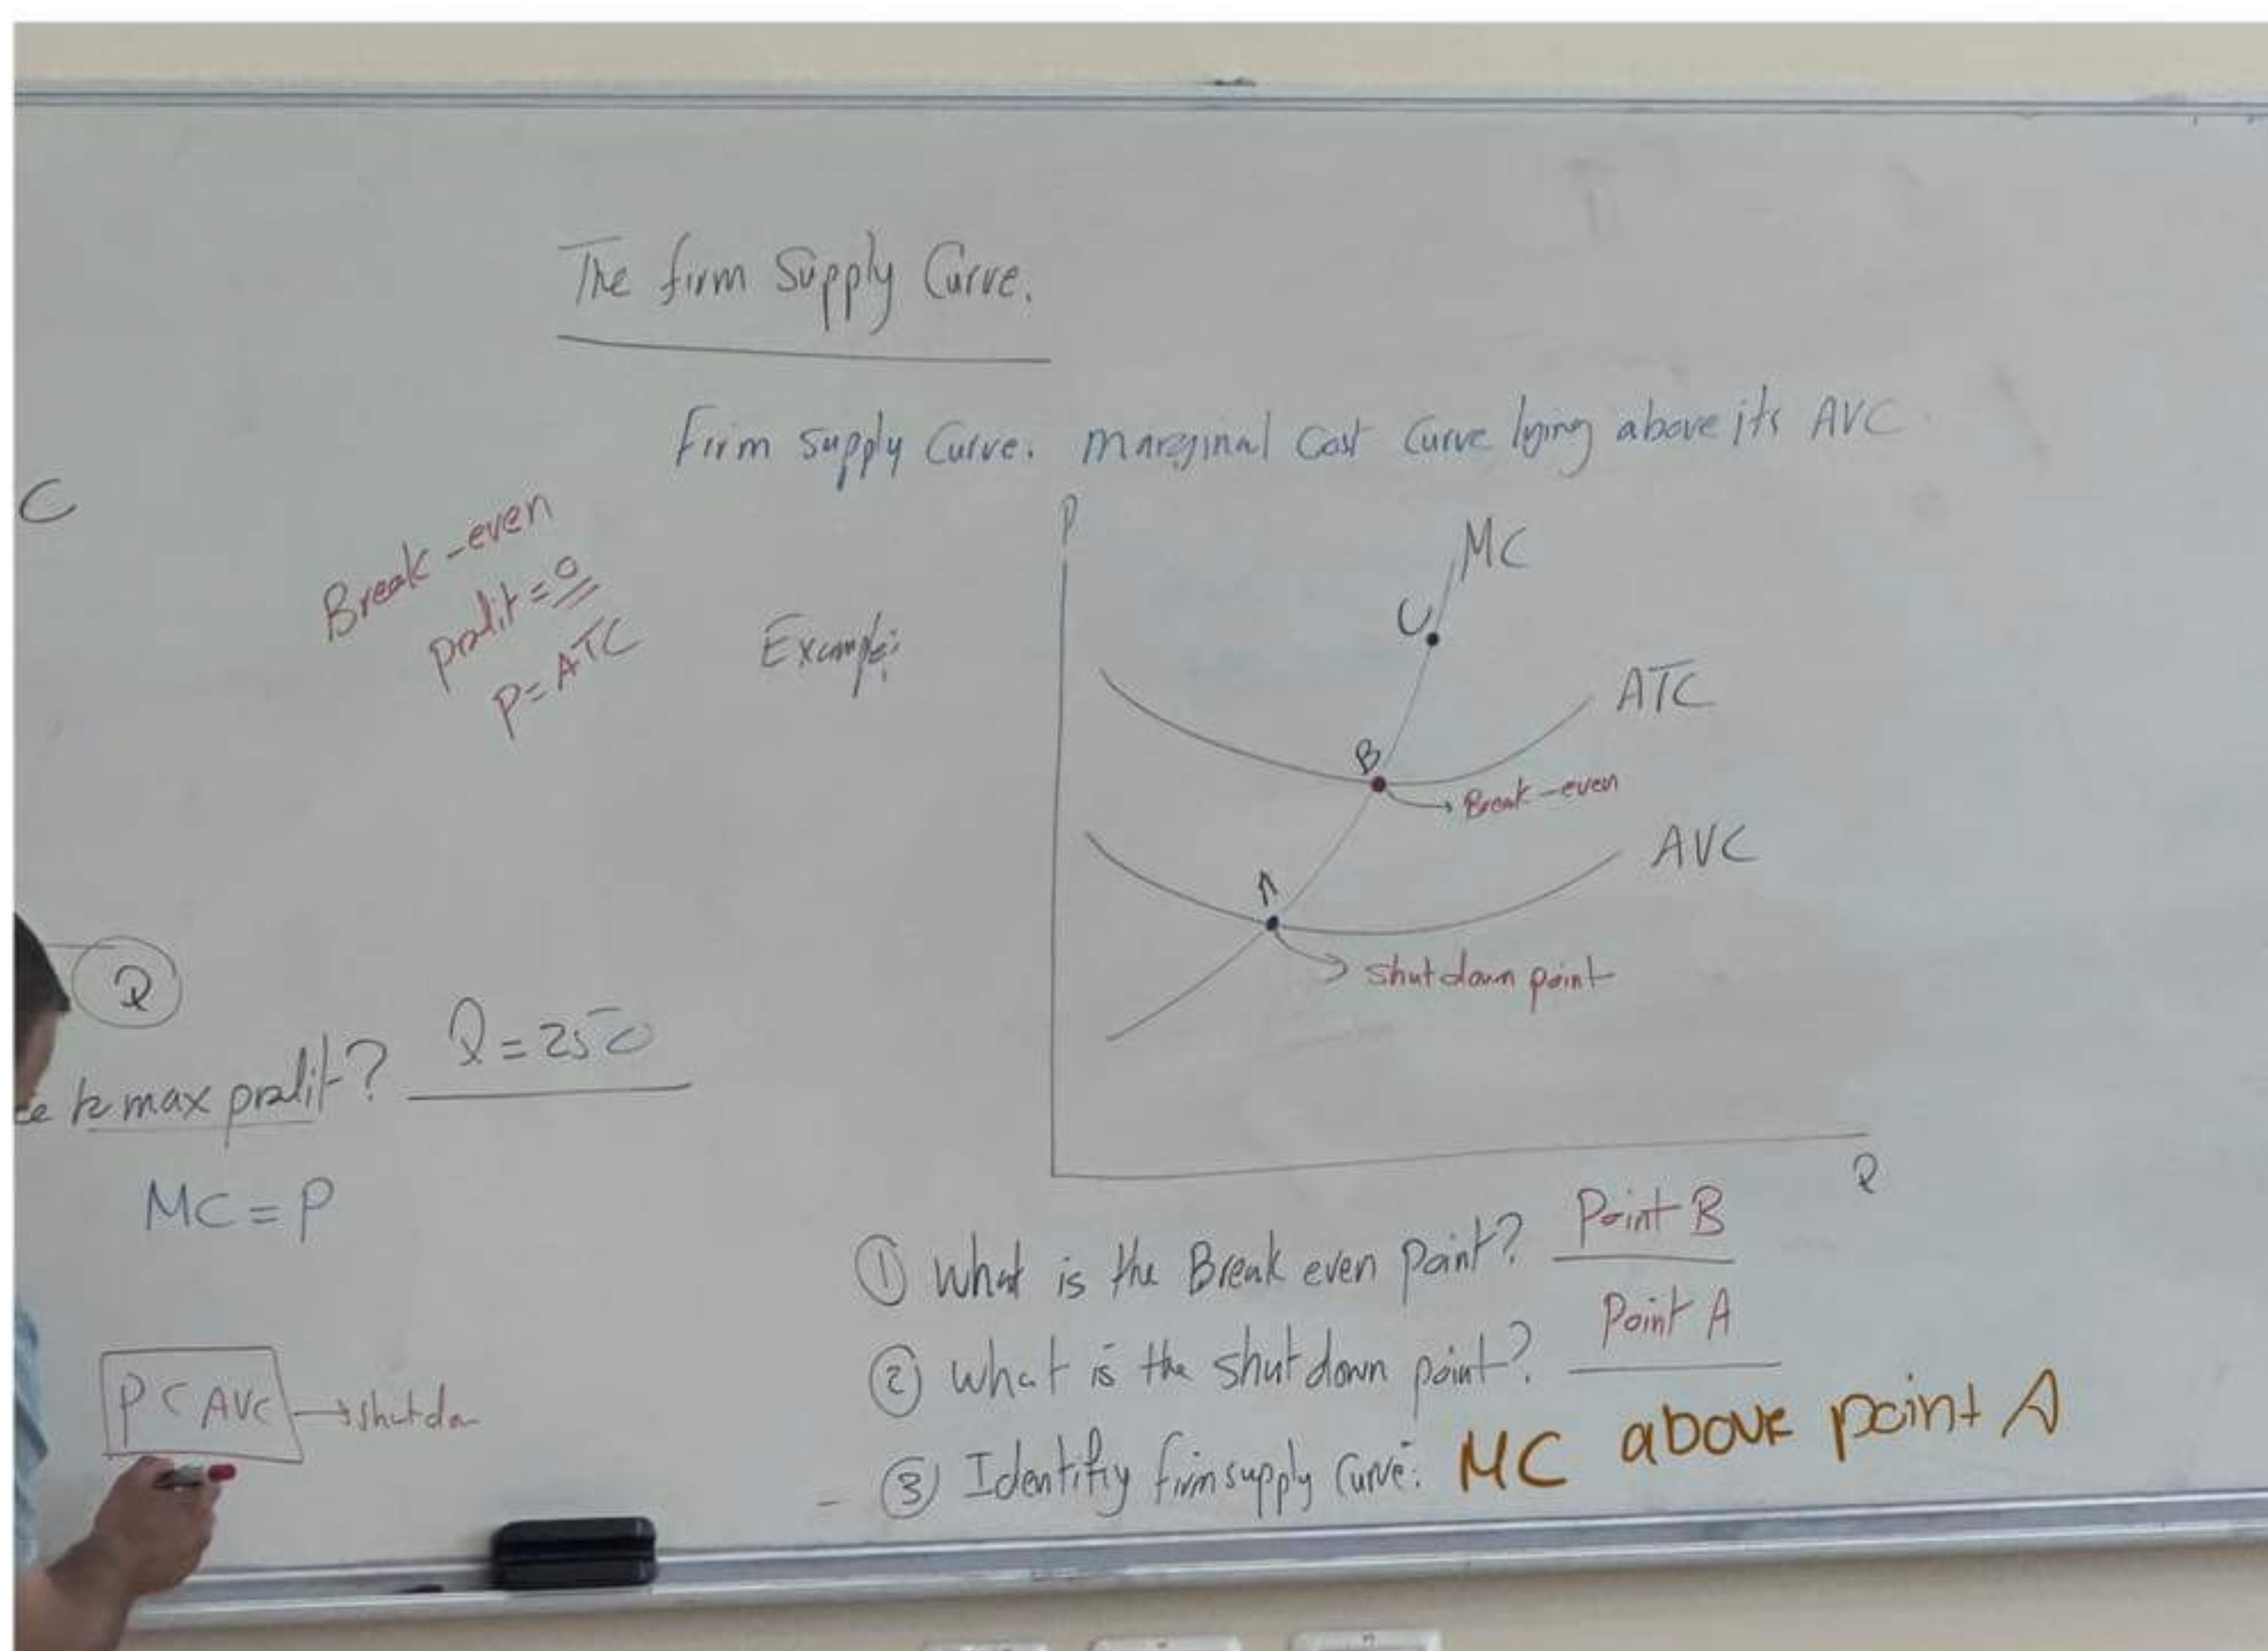 The firm Supply Curve.
Firm supply Curve: marginal Cost Curve lying above its AVC
C
Break-even
profit = 0
P = ATC
Example:
P
MC
C
ATC
B
Break-even
AVC
A
shut down point
Q
Q
Q = 250
to max profit?
MC = P
P < AVC → shut do
① What is the Break even Point? Point B
② What is the shut down point? Point A
③ Identifiy firm supply Curve: MC above point A